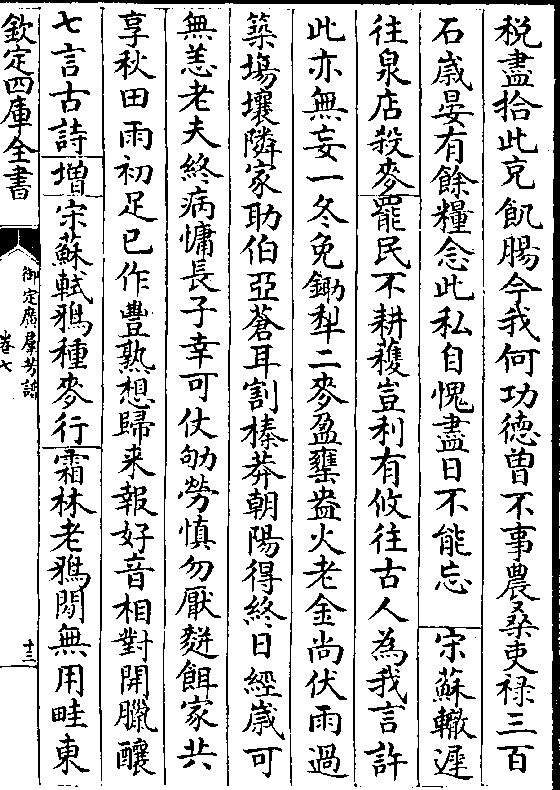 稅盡拾此充飢腸今我何功德曽不事農桑吏禄三百
石嵗晏有餘糧念此私自愧盡日不能忘 宋蘇轍遲
往泉店殺麥罷民不耕穫豈利有攸往古人為我言許
此亦無妄一冬免鋤犁二麥盈罋盎火老金尚伏雨過
築塲壤隣家助伯亞蒼耳割榛莽朝陽得終日經嵗可
無恙老夫終病慵長子幸可仗劬勞慎勿厭麰餌家共
享秋田雨初足已作豐熟想歸来報好音相對開臘釀
七言古詩增宋蘇軾鴉種麥行霜林老鴉閒無用畦東
欽定四庫全書
御定廣羣芳譜
卷七
十三